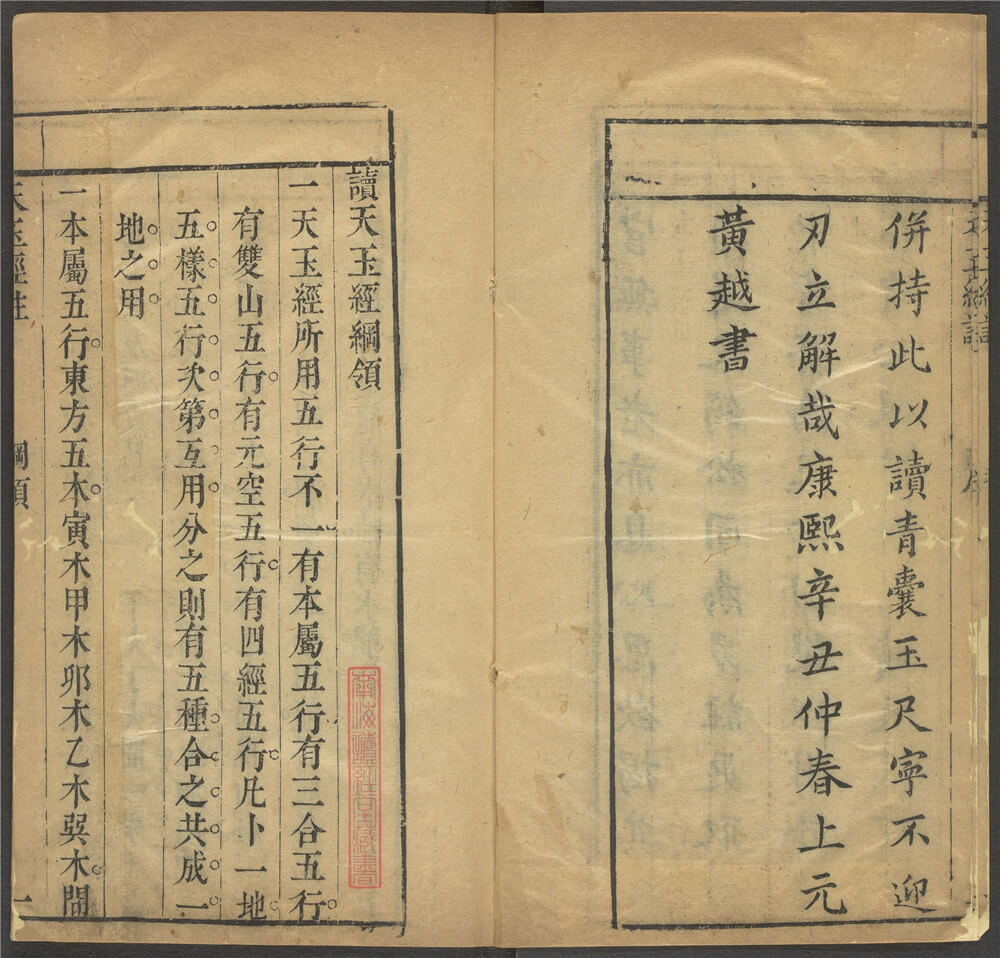 併持此以讀青囊玉尺寧不迎
刃立解哉康熙辛丑仲春上元
黃越書
讀天玉經綱領
一天玉經所用五行不一有本屬五行有三合五行
有雙山五行有元空五行有四經五行凡卜一地
五樣五行次第互用分之則有五種合之共成一
地之用
一本屬五行東方五木寅木甲木卯木乙木巽木間
天玉經註 綱領 一